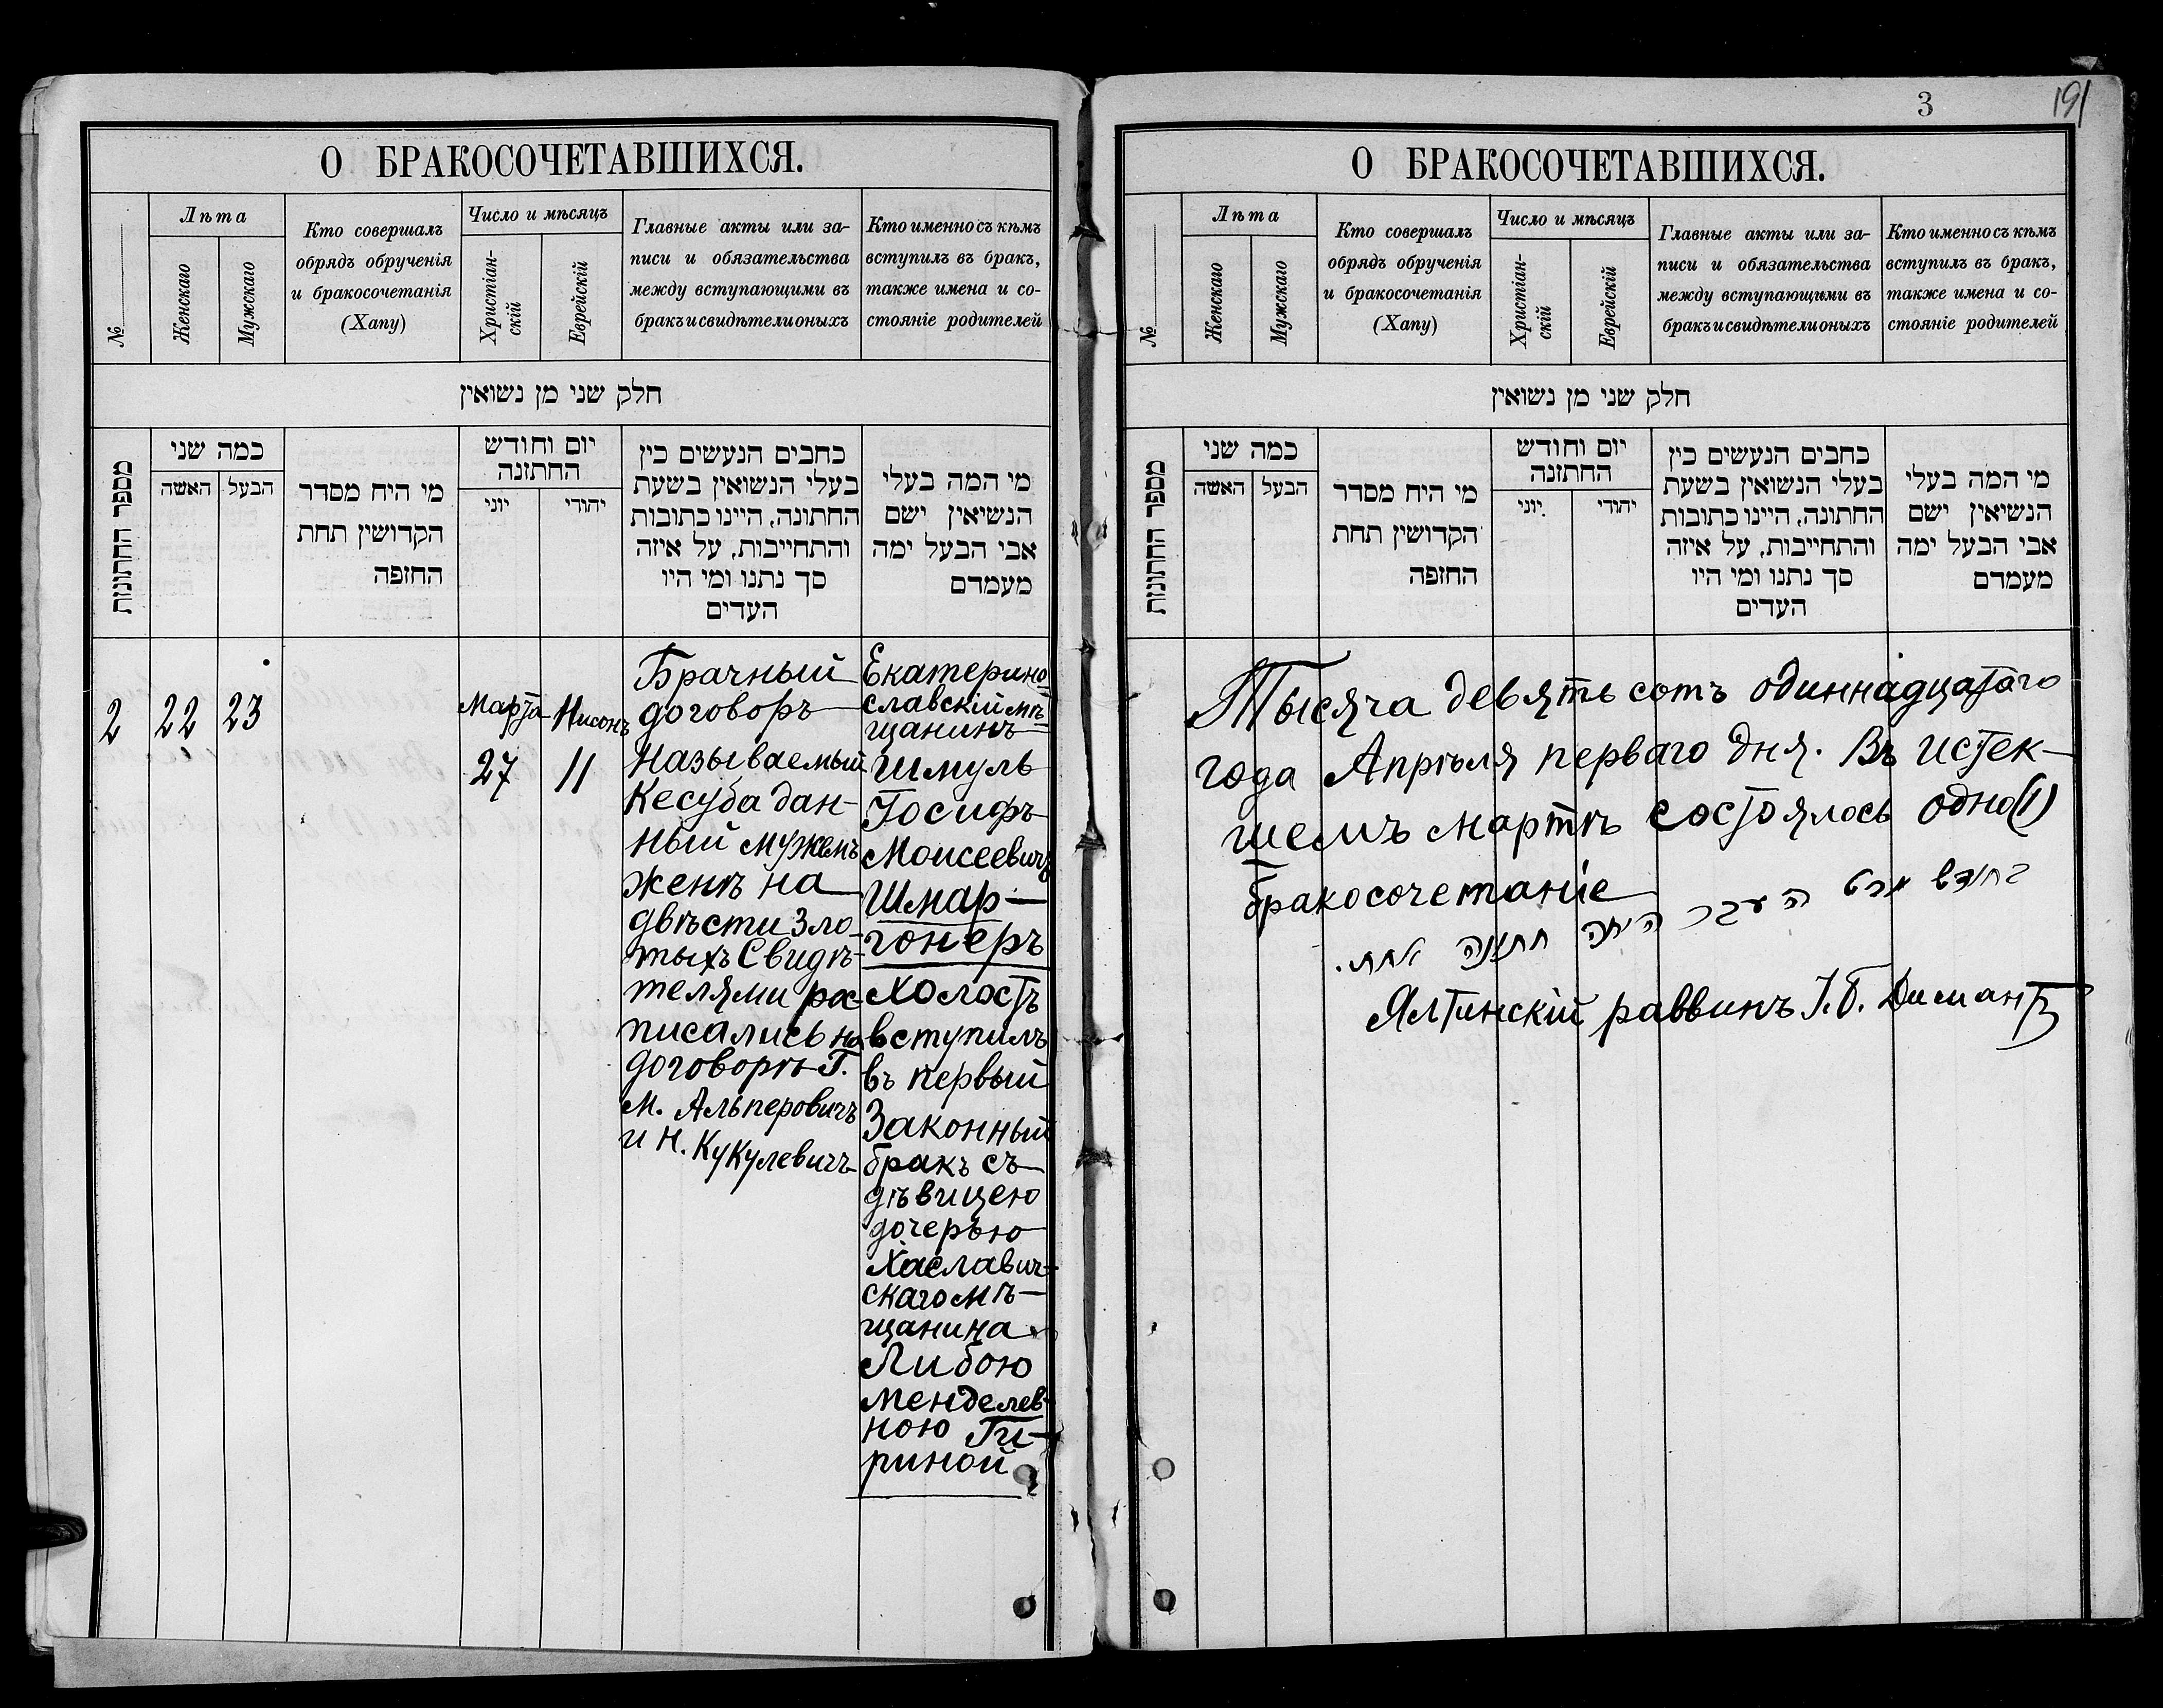 О БРАКОСОЧЕТАВШИХСЯ.
№
Лѣта
Женскаго
Мужскаго
Кто совершалъ
обрядъ обрученія
и бракосочетанія
(Хапу)
Число и мѣсяцъ
Христіан-
скій
Еврейскій
Главные акты или за-
писи и обязательства
между вступающими въ
бракъ и свидѣтели оныхъ
Кто именно съ кѣмъ
вступилъ въ бракъ,
также имена и со-
стояніе родителей
חלק שני מן נשואין
מספר החתונות
כמה שני
האשה
הבעל
מי היח מסדר
הקדושין תחת
החופה
יום וחודש
החתונה
יוני
יהודי
כחבים הנעשים כין
בעלי הנשואין בשעת
החתונה, היינו כתובות
והתחייבות, על איזה
סך נתנו ומי היו
העדים
מי המה בעלי
הנשיאין ישם
אבי הבעל ימה
מעמדם
2
22
23
Марта
27
Нисонъ
11
Брачный
договоръ
Называемый
Кесуба дан-
ный мужемъ
женѣ на
двѣсти Зло-
тыхъ Свидѣ-
телями рос-
писались на
договорѣ Г.
М. Альперовичъ
и Н. Кукулевичъ
Екатерино-
славскій мѣ-
щанинъ
Шмуль
Іосифъ
Моисеевичъ
Шмар-
гонеръ
Холостъ
вступилъ
въ первый
Законный
бракъ съ
дѣвицею
дочерью
Хаславич-
скаго мѣ-
щанина
Либою
Менделев-
ною Ги-
риной
3
191
О БРАКОСОЧЕТАВШИХСЯ.
№
Лѣта
Женскаго
Мужскаго
Кто совершалъ
обрядъ обрученія
и бракосочетанія
(Хапу)
Число и мѣсяцъ
Христіан-
скій
Еврейскій
Главные акты или за-
писи и обязательства
между вступающими въ
бракъ и свидѣтели оныхъ
Кто именно съ кѣмъ
вступилъ въ бракъ,
также имена и со-
стояніе родителей
חלק שני מן נשואין
מספר החתונות
כמה שני
האשה
הבעל
מי היח מסדר
הקדושין תחת
החופה
יום וחודש
החתונה
יוני
יהודי
כחבים הנעשים כין
בעלי הנשואין בשעת
החתונה, היינו כתובות
והתחייבות, על איזה
סך נתנו ומי היו
העדים
מי המה בעלי
הנשיאין ישם
אבי הבעל ימה
מעמדם
Тысяча девять сотъ одиннадцатаго
года Апрѣля перваго дня. Въ истек-
шемъ мартѣ состоялось одно (1)
бракосочетаніе
בחודש מרט העבר היתה חתונה אחת.
Ялтинскій раввинъ І. Б. Димантъ